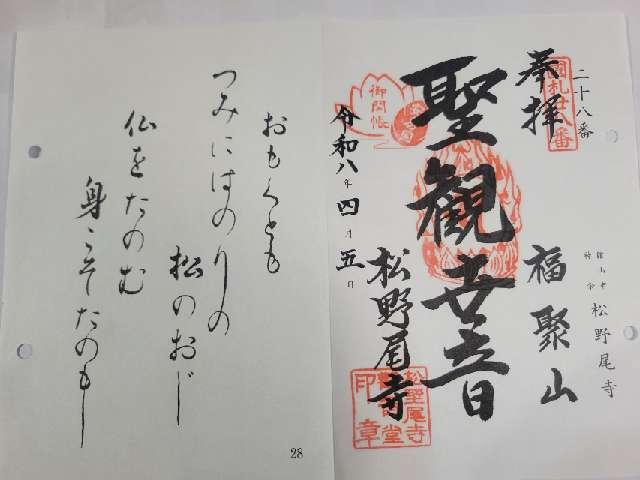 二十八番
奉拝
國札廿八番
館山市
神余
松野尾寺
福聚山
聖観世音
御開帳
令和八年四月五日
松野尾寺
印章
おもくとも
つみにはのりの
松のおじ
仏をたのむ
身こそたのもし
28